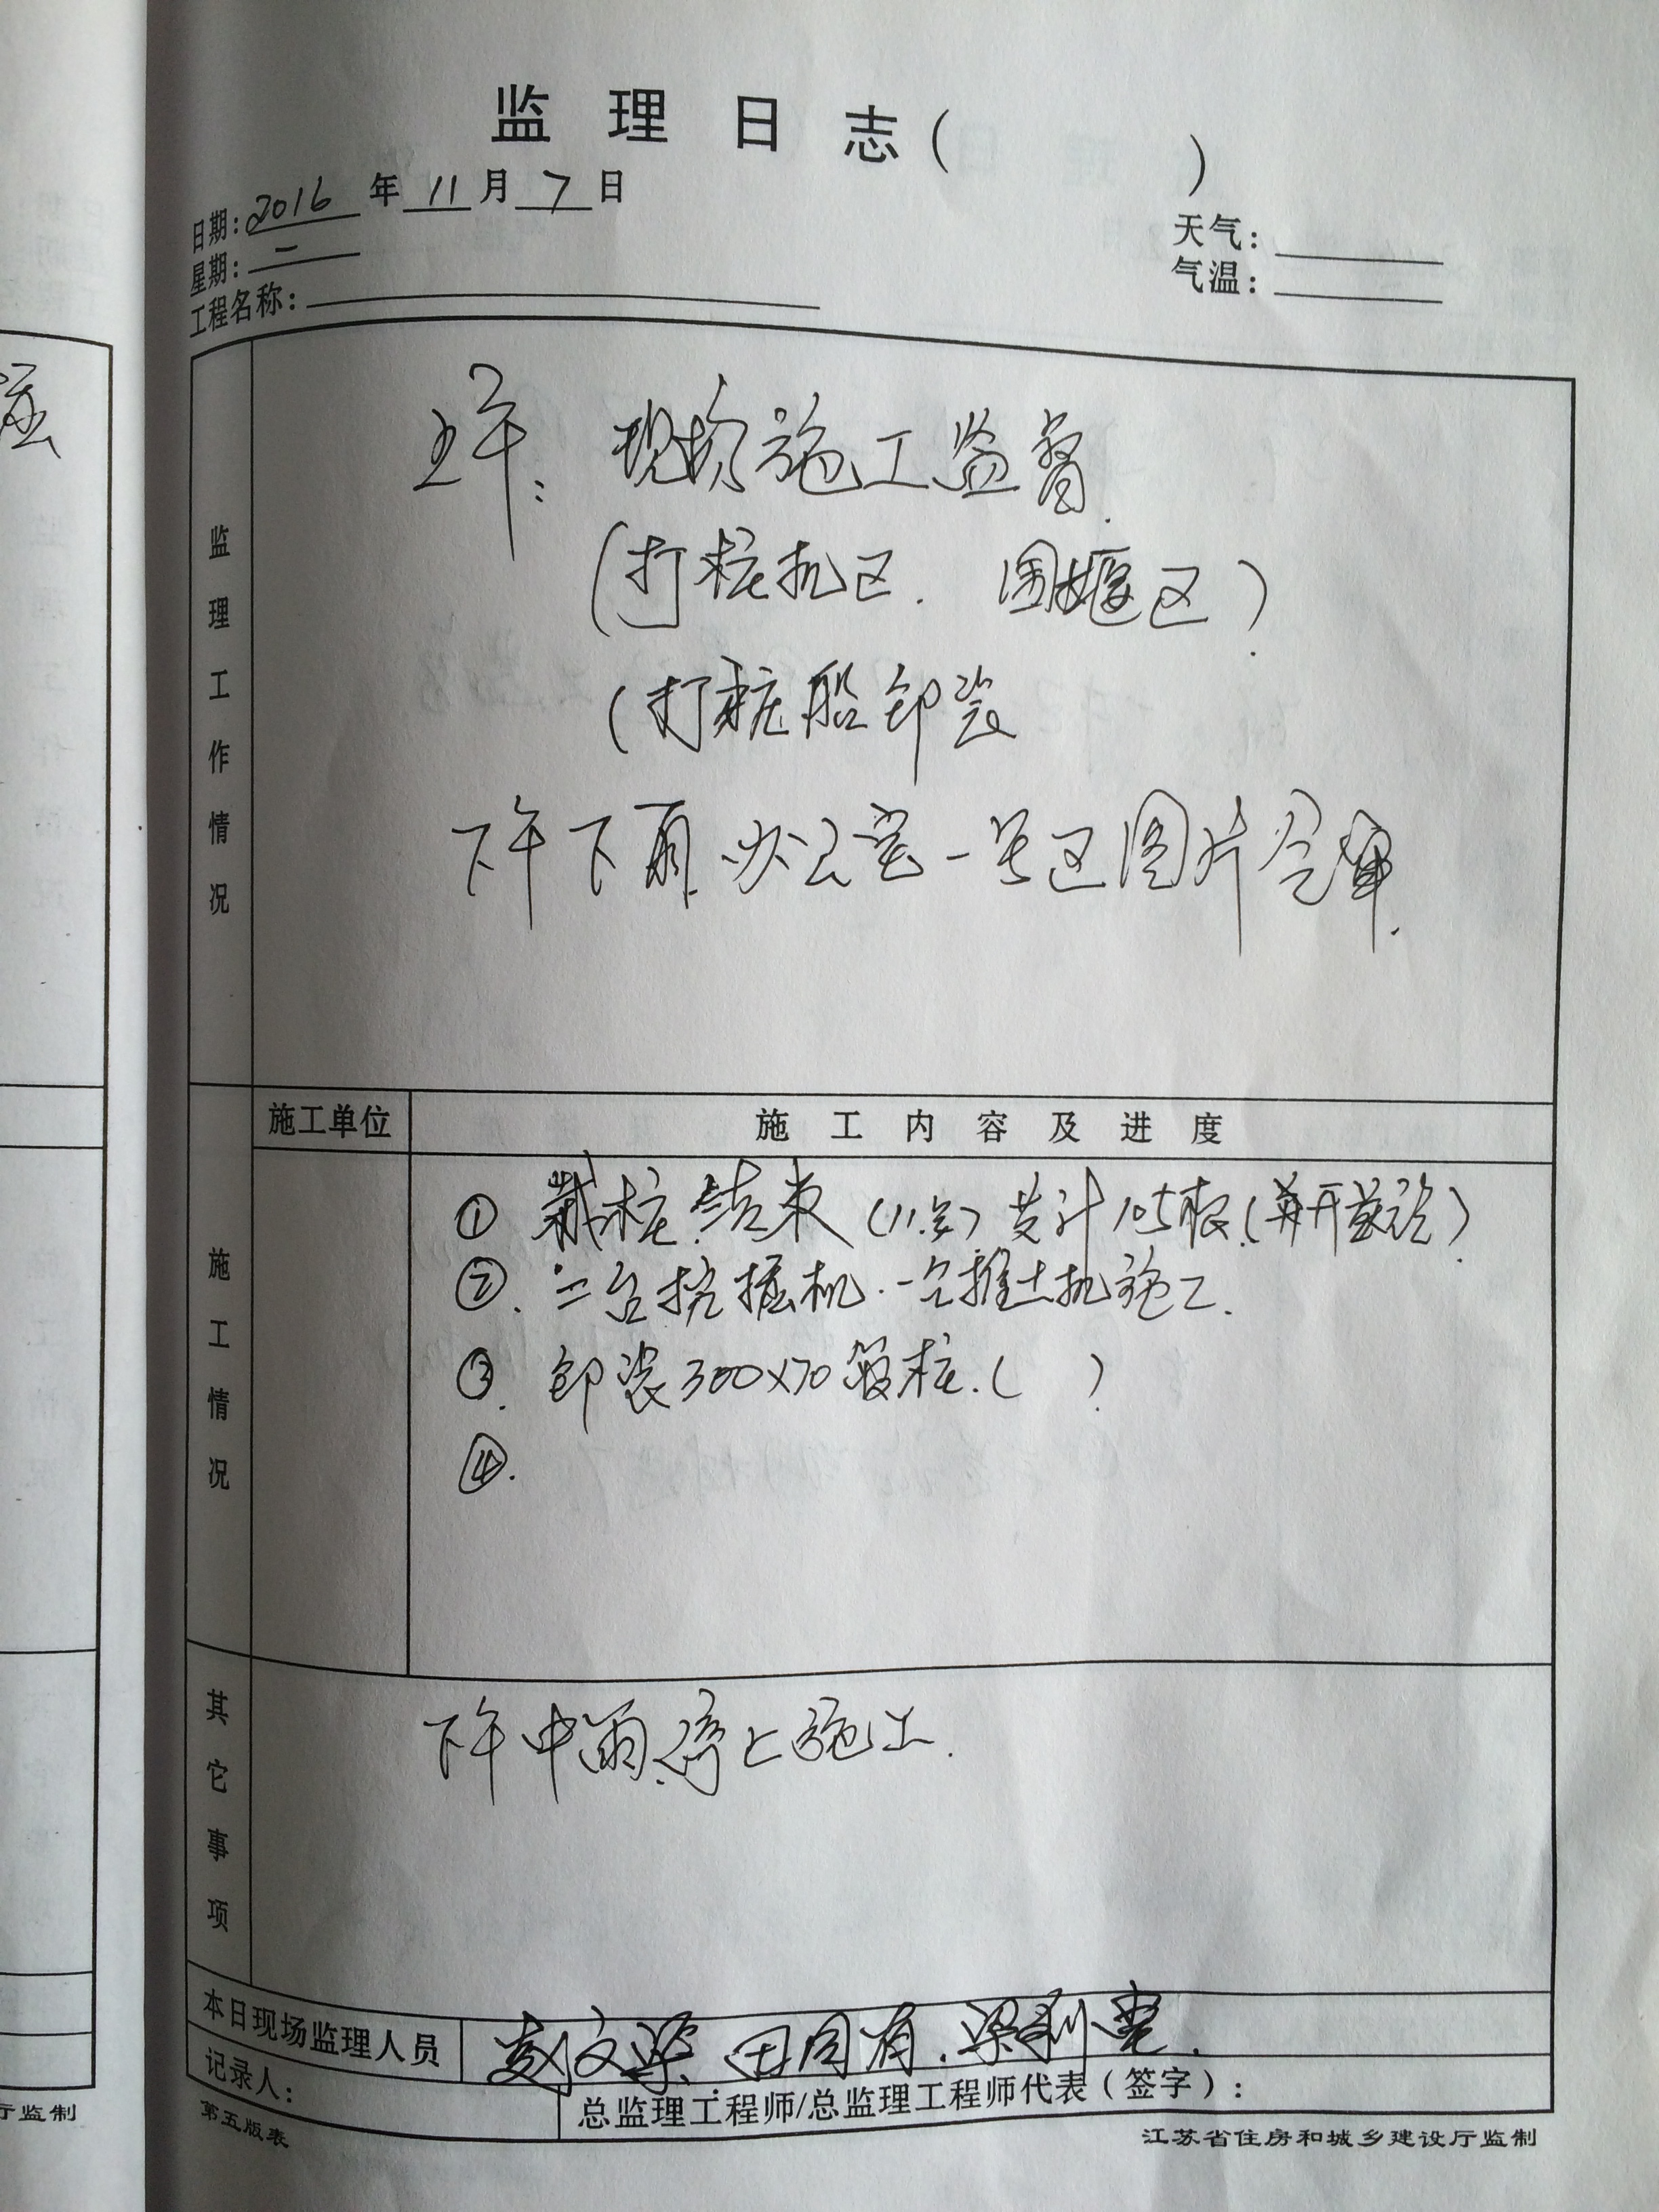 监理日志(　　)
日期:2016年11月7日
星期:一
天气:
气温:
工程名称:
监理工作情况
上午:现场施工监督.
(打桩机区.围堰区).
(打桩船卸装
下午下雨.办公室一号区图片
施工情况
施工单位 施工内容及进度
① 桩结束(11.)共计105根.
②.二台挖掘机.一台推土机施工.
③.卸装300×70管桩.(　)
④.
其它事项
下午中雨.停止施工.
本日现场监理人员 文梁.田同有.梁利
记录人: 总监理工程师/总监理工程师代表(签字):
第五版表 江苏省住房和城乡建设厅监制
厅监制